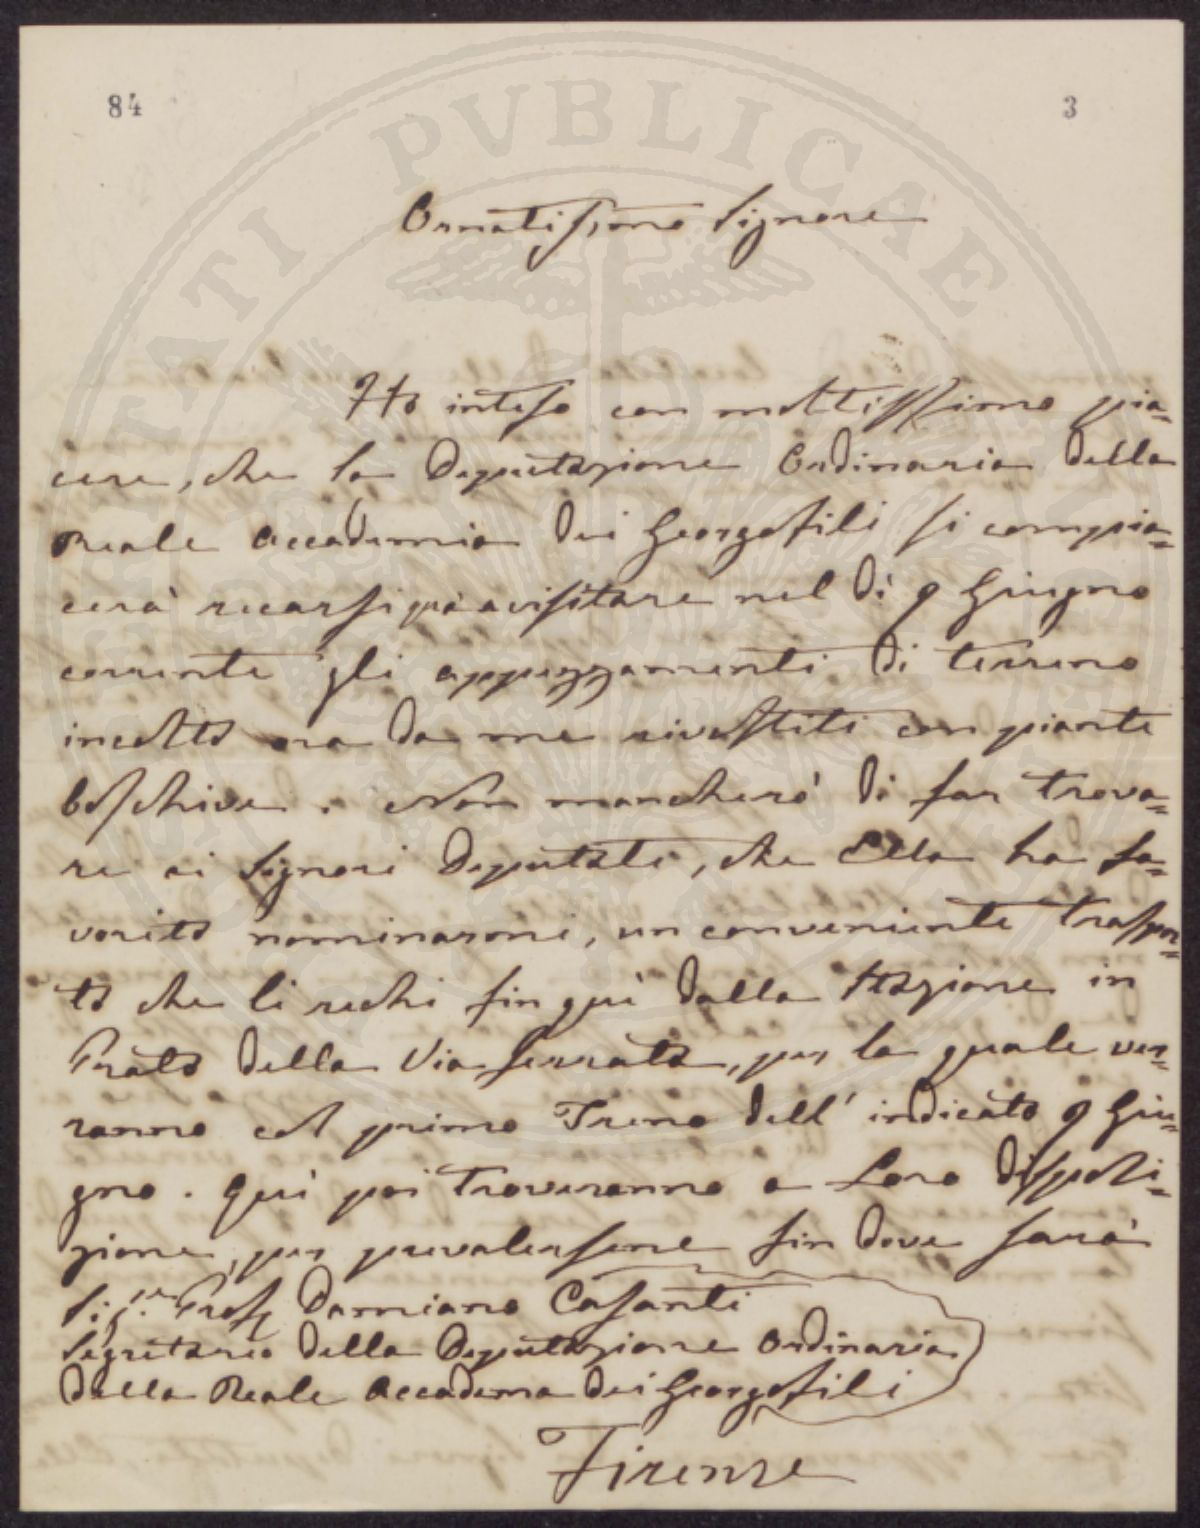 84
3
PROSPERITATI PVBLICAE AVGENDAE
Ornatissimo Signore
Ho inteso con moltissimo pia=
cere, che la Deputazione Ordinaria della
Reale Accademia dei Georgofili si compia=
cerà recarsi quà a visitare nel dì 9 Giugno
corrente gli appezzamenti di terreno
incolto ora da me rivestiti con piante
boschive. Non mancherò di far trova=
re ai Signori Deputati, che Ella ha fa=
vorito nominarmi, un conveniente traspor=
to che li rechi fin quì dalla Stazione in
Prato della Via ferrata, per la quale ver=
ranno col primo Treno dell' indicato 9 Giu=
gno. Quì poi troveranno a Loro disposi=
zione, per prevalersene fin dove sarà
Sig.re Prof. Damiano Casanti
Segretario della Deputazione Ordinaria
della Reale Accadema dei Georgofili
Firenze